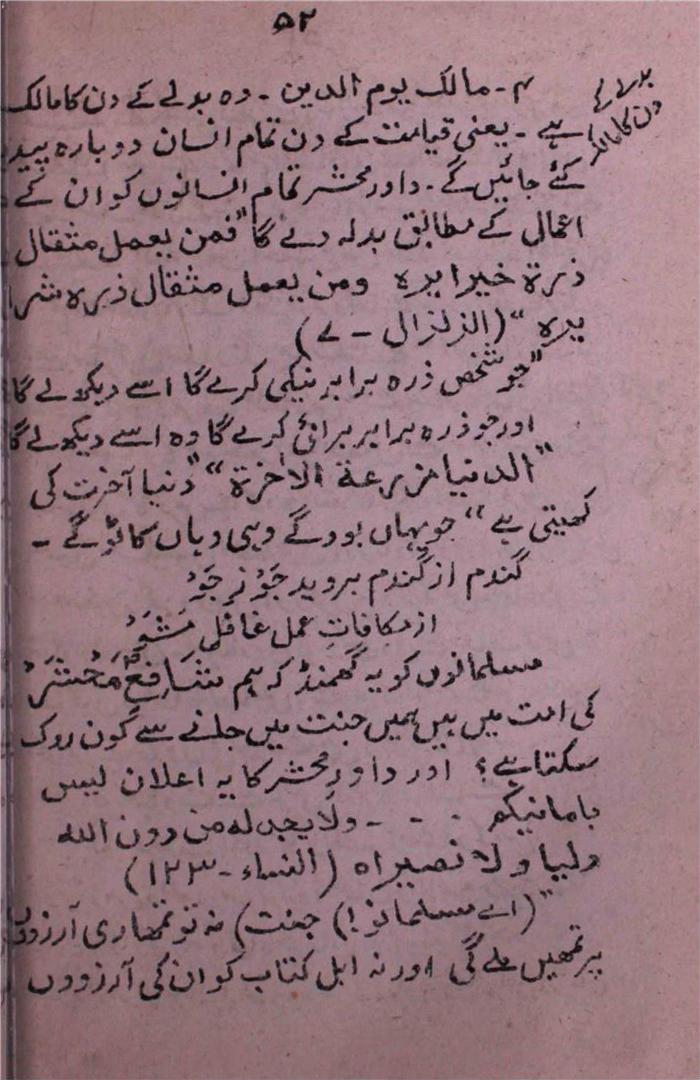 ۵۲
بدلے کے
دن کا مالک
۳۔ مالک یوم الدین ۔ وہ بدلے کے دن کا مالک
ہے ۔ یعنی قیامت کے دن تمام انسان دوبارہ پید
کئے جائیں گے ۔ داور محشر تمام انسانوں کو ان کے
اعمال کے مطابق بدلہ دے گا "فمن یعمل مثقال
ذرۃ خیرا یرہ ومن یعمل مثقال ذرہ شرا
یرہ" (الزلزال ۔ ۷)
"جو شخص ذرہ برابر نیکی کرے گا اسے دیکھ لے گا
اور جو ذرہ برابر برائی کرے گا وہ اسے دیکھ لے گا
"الدنیا مزرعۃ الاٰخرۃ" "دنیا آخرت کی
کھیتی ہے" جو یہاں بوو گے وہی وہاں کاٹو گے ۔
گندم از گندم بروید جَوْ زِ جَوْ
از مکافاتِ عمل غافل مَشَوْ
مسلمانوں کو یہ گھمنڈ کہ ہم شَافِعِ مَحْشَرْ
کی امت میں ہیں ہمیں جنت میں جانے سے کون روک
سکتا ہے؟ اور داورِ محشر کا یہ اعلان لیس
بامانیکم ۔ ۔ ۔ ولا یجد لہ من دون اللہ
ولیا ولا نصیراہ (النساء ۔ ۱۲۳)
"(اے مسلمانو!) جنت) نہ تو تمھاری آرزوں
پر تمھیں ملے گی اور نہ اہل کتاب کو ان کی آرزووں